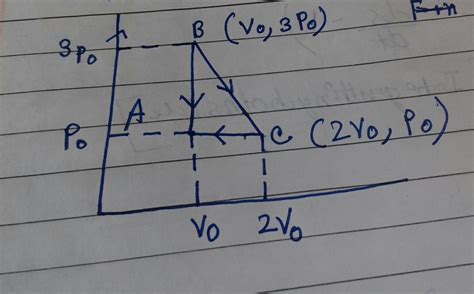 B (V₀, 3P₀)
3P₀
A
P₀
C (2V₀, P₀)
V₀ 2V₀